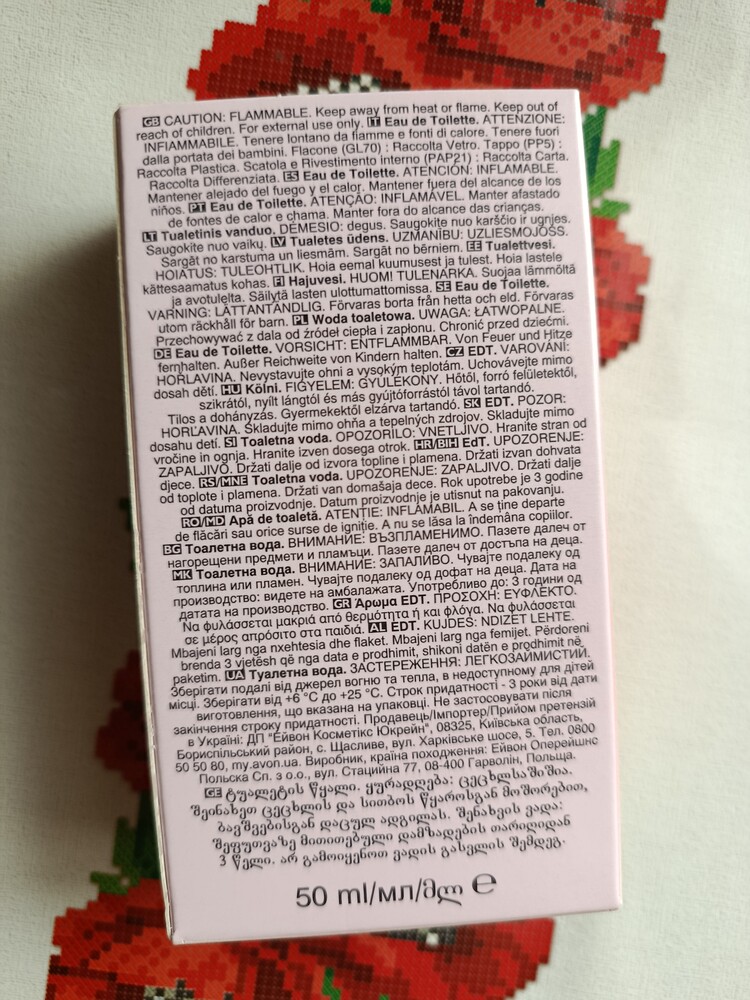 GB CAUTION: FLAMMABLE. Keep away from heat or flame. Keep out of
reach of children. For external use only. IT Eau de Toilette. ATTENZIONE:
INFIAMMABILE. Tenere lontano da fiamme e fonti di calore. Tenere fuori
dalla portata dei bambini. Flacone (GL70) : Raccolta Vetro. Tappo (PP5) :
Raccolta Plastica. Scatola e Rivestimento interno (PAP21) : Raccolta Carta.
Raccolta Differenziata. ES Eau de Toilette. ATENCIÓN: INFLAMABLE.
Mantener alejado del fuego y el calor. Mantener fuera del alcance de los
niños. PT Eau de Toilette. ATENÇÃO: INFLAMÁVEL. Manter afastado
de fontes de calor e chama. Manter fora do alcance das crianças.
LT Tualetinis vanduo. DĖMESIO: degus. Saugokite nuo karščio ir ugnies.
Saugokite nuo vaikų. LV Tualetes ūdens. UZMANĪBU: UZLIESMOJOŠS.
Sargāt no karstuma un liesmām. Sargāt no bērniem. EE Tualettvesi.
HOIATUS: TULEOHTLIK. Hoia eemal kuumusest ja tulest. Hoia lastele
kättesaamatus kohas. FI Hajuvesi. HUOM! TULENARKA. Suojaa lämmöltä
ja avotulelta. Säilytä lasten ulottumattomissa. SE Eau de Toilette.
VARNING: LÄTTANTÄNDLIG. Förvaras borta från hetta och eld. Förvaras
utom räckhåll för barn. PL Woda toaletowa. UWAGA: ŁATWOPALNE.
Przechowywać z dala od źródeł ciepła i zapłonu. Chronić przed dziećmi.
DE Eau de Toilette. VORSICHT: ENTFLAMMBAR. Von Feuer und Hitze
fernhalten. Außer Reichweite von Kindern halten. CZ EDT. VAROVÁNÍ:
HOŘLAVINA. Nevystavujte ohni a vysokým teplotám. Uchovávejte mimo
dosah dětí. HU Kölni. FIGYELEM: GYÚLÉKONY. Hőtől, forró felületektől,
szikrától, nyílt lángtól és más gyújtóforrástól távol tartandó.
Tilos a dohányzás. Gyermekektől elzárva tartandó. SK EDT. POZOR:
HORĽAVINA. Skladujte mimo ohňa a tepelných zdrojov. Skladujte mimo
dosahu detí. SI Toaletna voda. OPOZORILO: VNETLJIVO. Hranite stran od
vročine in ognja. Hranite izven dosega otrok. HR/BIH EdT. UPOZORENJE:
ZAPALJIVO. Držati dalje od izvora topline i plamena. Držati izvan dohvata
djece. RS/MNE Toaletna voda. UPOZORENJE: ZAPALJIVO. Držati dalje
od toplote i plamena. Držati van domašaja dece. Rok upotrebe je 3 godine
od datuma proizvodnje. Datum proizvodnje je utisnut na pakovanju.
RO/MD Apă de toaletă. ATENȚIE: INFLAMABIL. A se ține departe
de flăcări sau orice surse de igniție. A nu se lăsa la îndemâna copiilor.
BG Тоалетна вода. ВНИМАНИЕ: ВЪЗПЛАМЕНИМО. Пазете далеч от
нагорещени предмети и пламъци. Пазете далеч от достъпа на деца.
MK Тоалетна вода. ВНИМАНИЕ: ЗАПАЛИВО. Чувајте подалеку од
топлина или пламен. Чувајте подалеку од дофат на деца. Дата на
производство: видете на амбалажата. Употребливо до: 3 години од
датата на производство. GR Άρωμα EDT. ΠΡΟΣΟΧΗ: ΕΥΦΛΕΚΤΟ.
Να φυλάσσεται μακριά από θερμότητα ή και φλόγα. Να φυλάσσεται
σε μέρος απρόσιτο στα παιδιά. AL EDT. KUJDES: NDIZET LEHTE.
Mbajeni larg nga nxehtesia dhe flaket. Mbajeni larg nga femijet. Përdoreni
brenda 3 vjetësh që nga data e prodhimit, shikoni datën e prodhimit në
paketim. UA Туалетна вода. ЗАСТЕРЕЖЕННЯ: ЛЕГКОЗАЙМИСТИЙ.
Зберігати подалі від джерел вогню та тепла, в недоступному для дітей
місці. Зберігати від +6 °C до +25 °C. Строк придатності - 3 роки від дати
виготовлення, що вказана на упаковці. Не застосовувати після
закінчення строку придатності. Продавець/Імпортер/Прийом претензій
в Україні: ДП "Ейвон Косметікс Юкрейн", 08325, Київська область,
Бориспільський район, с. Щасливе, вул. Харківське шосе, 5. Тел. 0800
50 50 80, my.avon.ua. Виробник, країна походження: Ейвон Оперейшнс
Польска Сп. з о.о., вул. Стаційна 77, 08-400 Гарволін, Польща.
GE ტუალეტის წყალი. ყურადღება: ცეცხლსაშიშია.
შეინახეთ ცეცხლის და სითბოს წყაროსგან მოშორებით,
ბავშვებისგან დაცულ ადგილას. შენახვის ვადა:
შეფუთვაზე მითითებული დამზადების თარიღიდან
3 წელი. არ გამოიყენოთ ვადის გასვლის შემდეგ.
50 ml/мл/მლ ℮